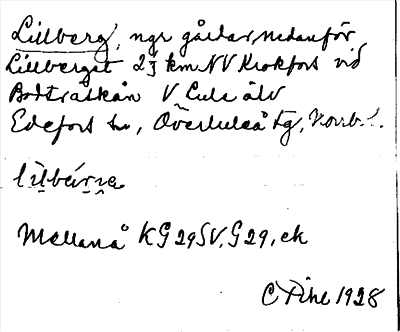 Lillberg, ngr gårdar nedanför
Lillberget 2 km NV Krokfors vid
Bodträskån V Lule älv
Edefors sn, Överluleå tg, Norrb. l.
Mellanå KG 29 SV, G 29, ek
C Pihl 1928